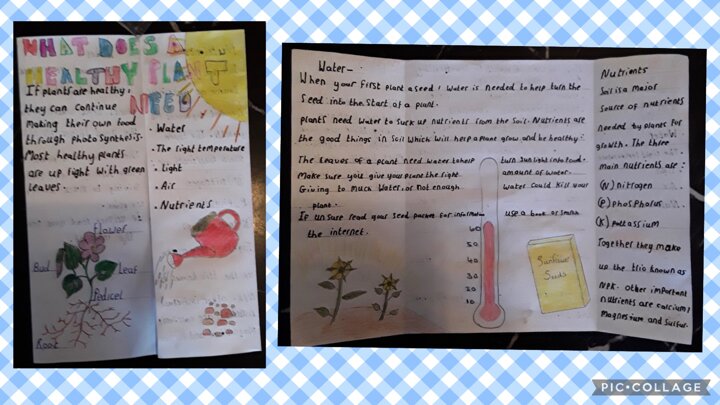 WHAT DOES A
HEALTHY PLANT
NEED
If plants are healthy,
they can continue
making their own food
through photosynthisis.
Most healthy plants
are up right with green
leaves.
• Water
• The right temperature
• Light
• Air
• Nutrients
Flower
Bud
Leaf
Pedicel
Root
Water-
When your first plant a seed, water is needed to help turn the
Seed into the start of a plant.
plants need water to suck up nutrients from the soil. Nutrients are
the good things in soil which will help a plane grow and be healthy.
The leaves of a plant need water to help turn sun light into food.
Make sure you give your plant the right amount of water.
Giving to much water, or not enough water could kill your
plant.
If unsure read your seed packet for information use a book or search
the internet.
60
50
40
30
20
10
Sunflower
Seeds
Nutrients
Soil is a major
source of nutrients
needed by plants for
growth. The three
main nutrients are:
(N) nitrogen
(P) phosphorus
(K) pottassium
Together they make
up the trio known as
NPK. other important
nutrients are calcium,
Magnesium and sulfur.
PIC•COLLAGE